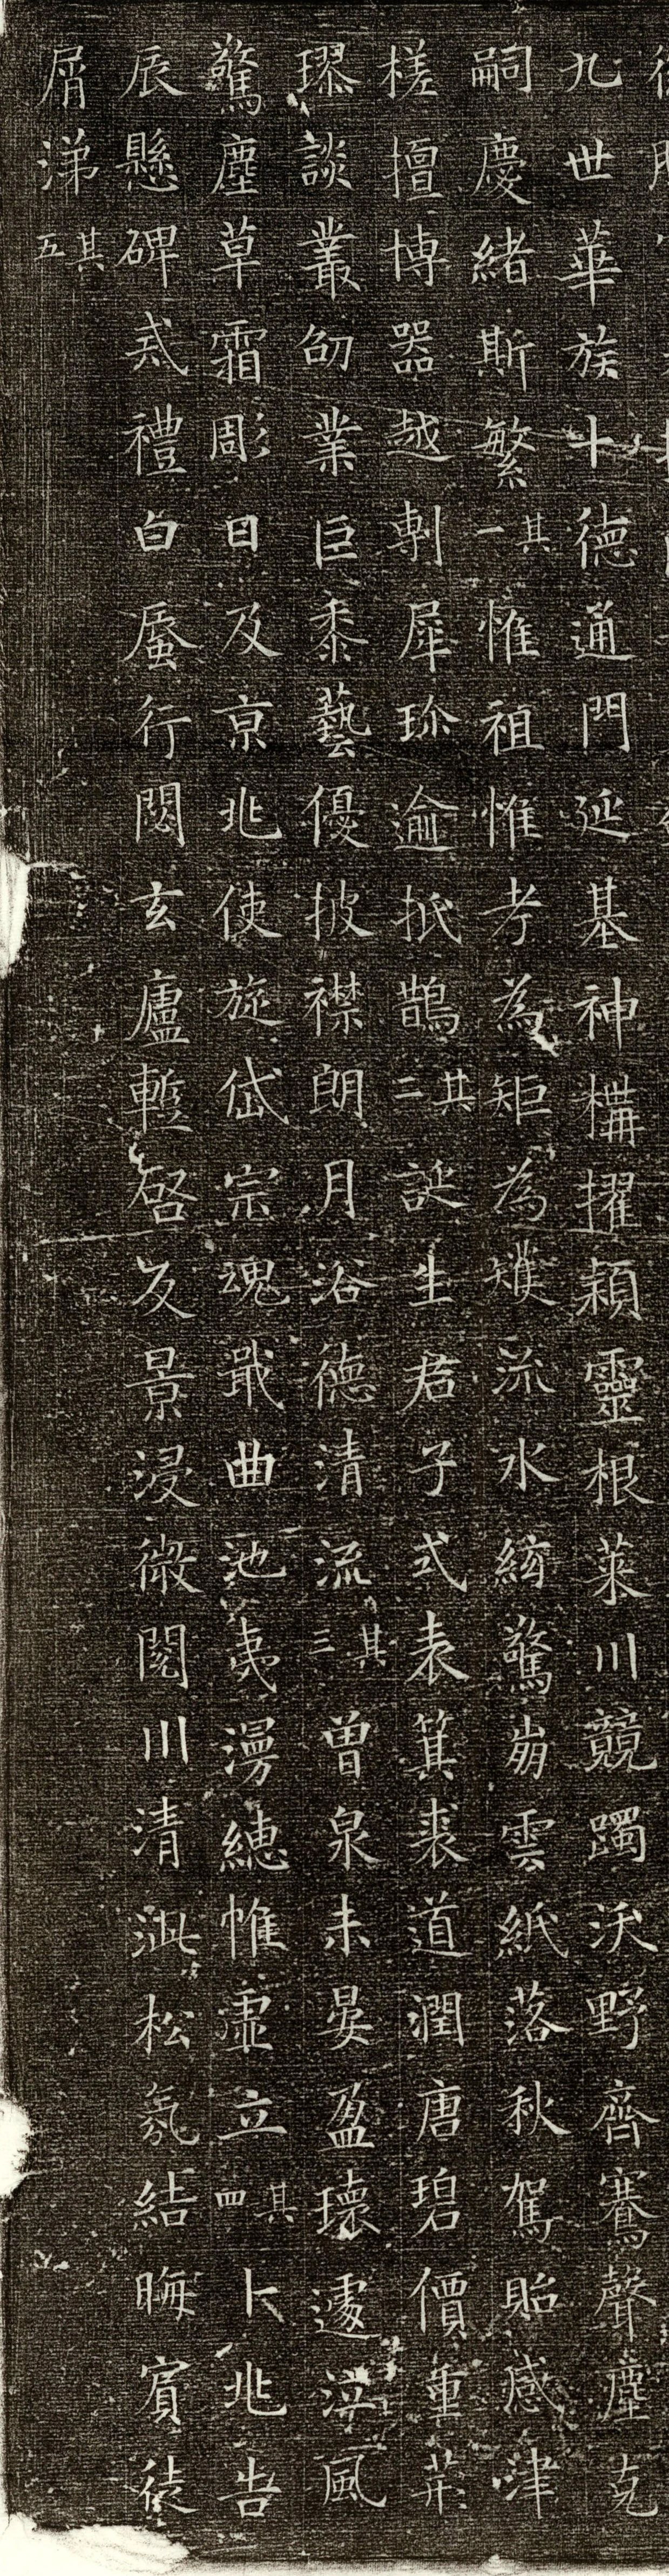 九世華族十德通門延基神構擢穎靈根萊川競躅沃野齊騫聲塵克
嗣慶緒斯繁其一惟祖惟考為矩為矱流水絃驚崩雲紙落秋駕貽感津
槎擅博器越剸犀珎逾抵鵲其二誕生君子式表箕裘道潤唐碧價重荊
璆談叢劭業巨黍藝優披襟朗月浴德清流其三曾泉未晏盈瓌遽淪風
驚塵草霜彫日及京兆使旋岱宗魂戢曲池夷漫繐帷虛立其四卜兆告
辰懸碑貳禮白蜃行閟玄廬蹔啓反景浸微閱川清泚松氛結晦賓徒
屑涕其五